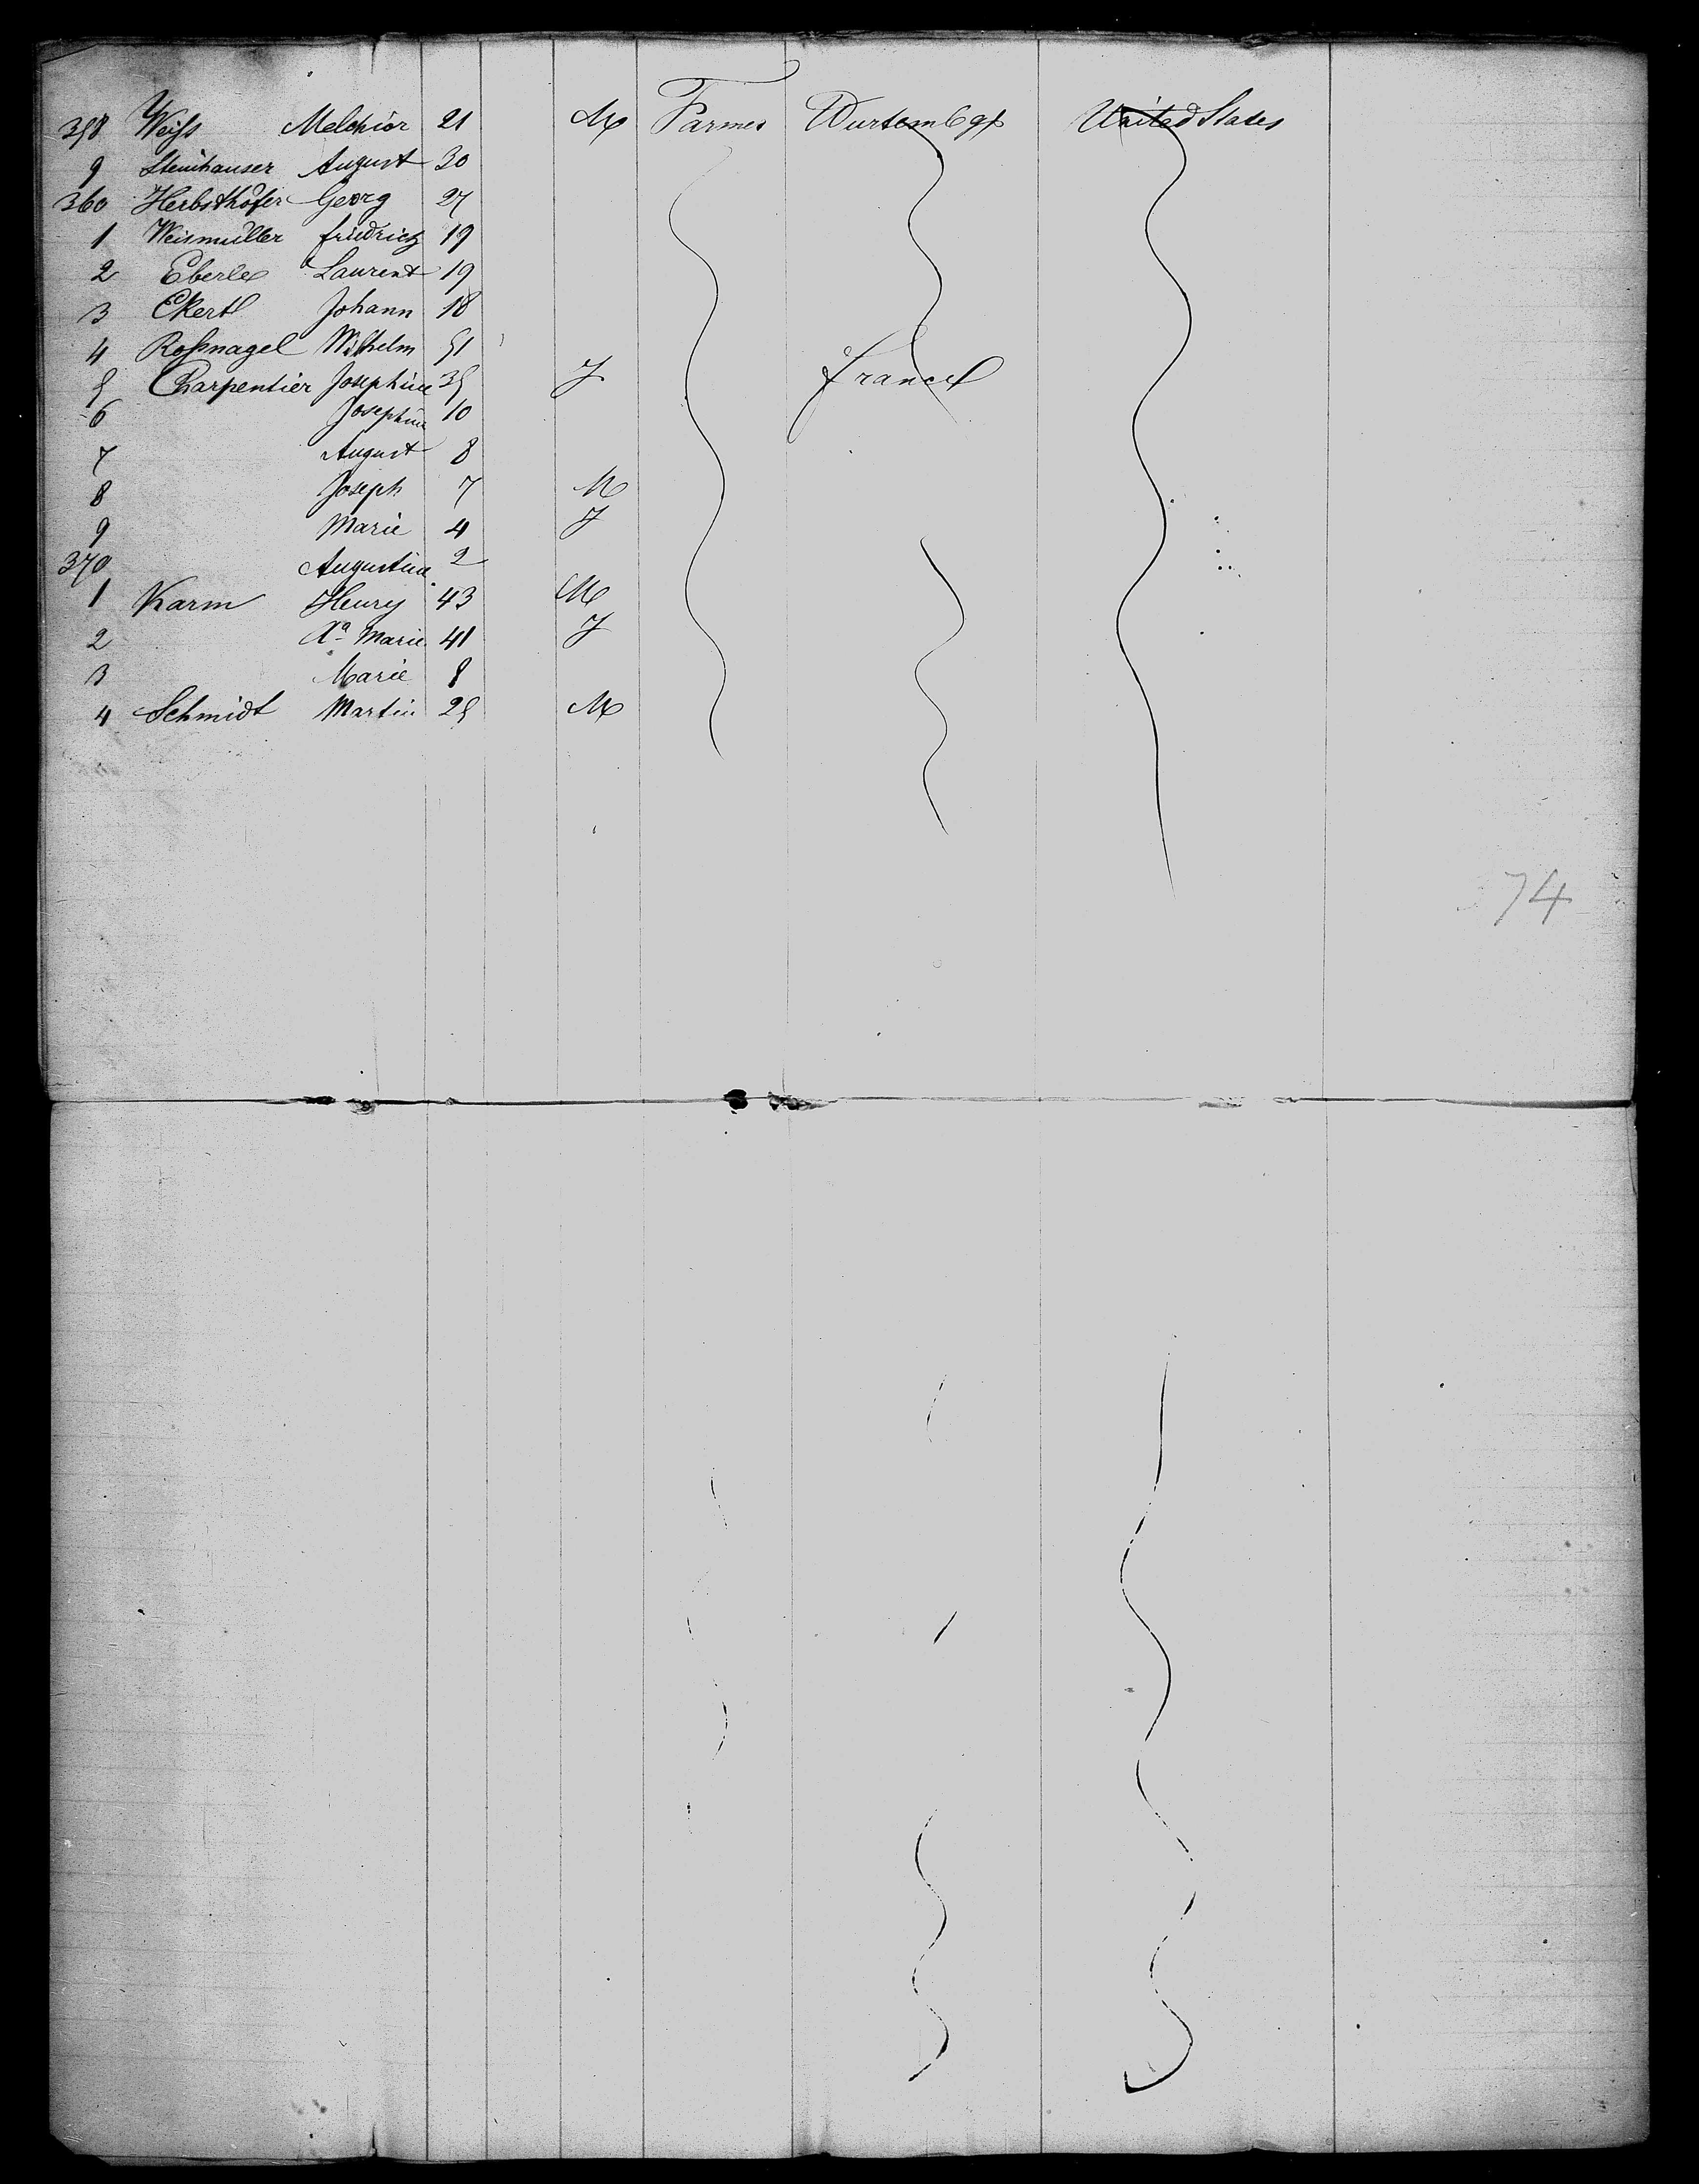 358 Weiss Melchior 21 M Farmer Wurtembgs United States
9 Steinhauser August 30
360 Herbsthofer Georg 27
1 Weismuller friedrich 19
2 Eberle Laurent 19
3 Ekert Johann 18
4 Rossnagel Wilhelm 51
5 Charpentier Josephine 35 F france
6 Josephine 10
7 August 8
8 Joseph 7 M
9 Marie 4 F
370 Augustine 2
1 Karm Henry 43 M
2 Marie 41 F
3 Marie 8
4 Schmidt Martin 25 M
74